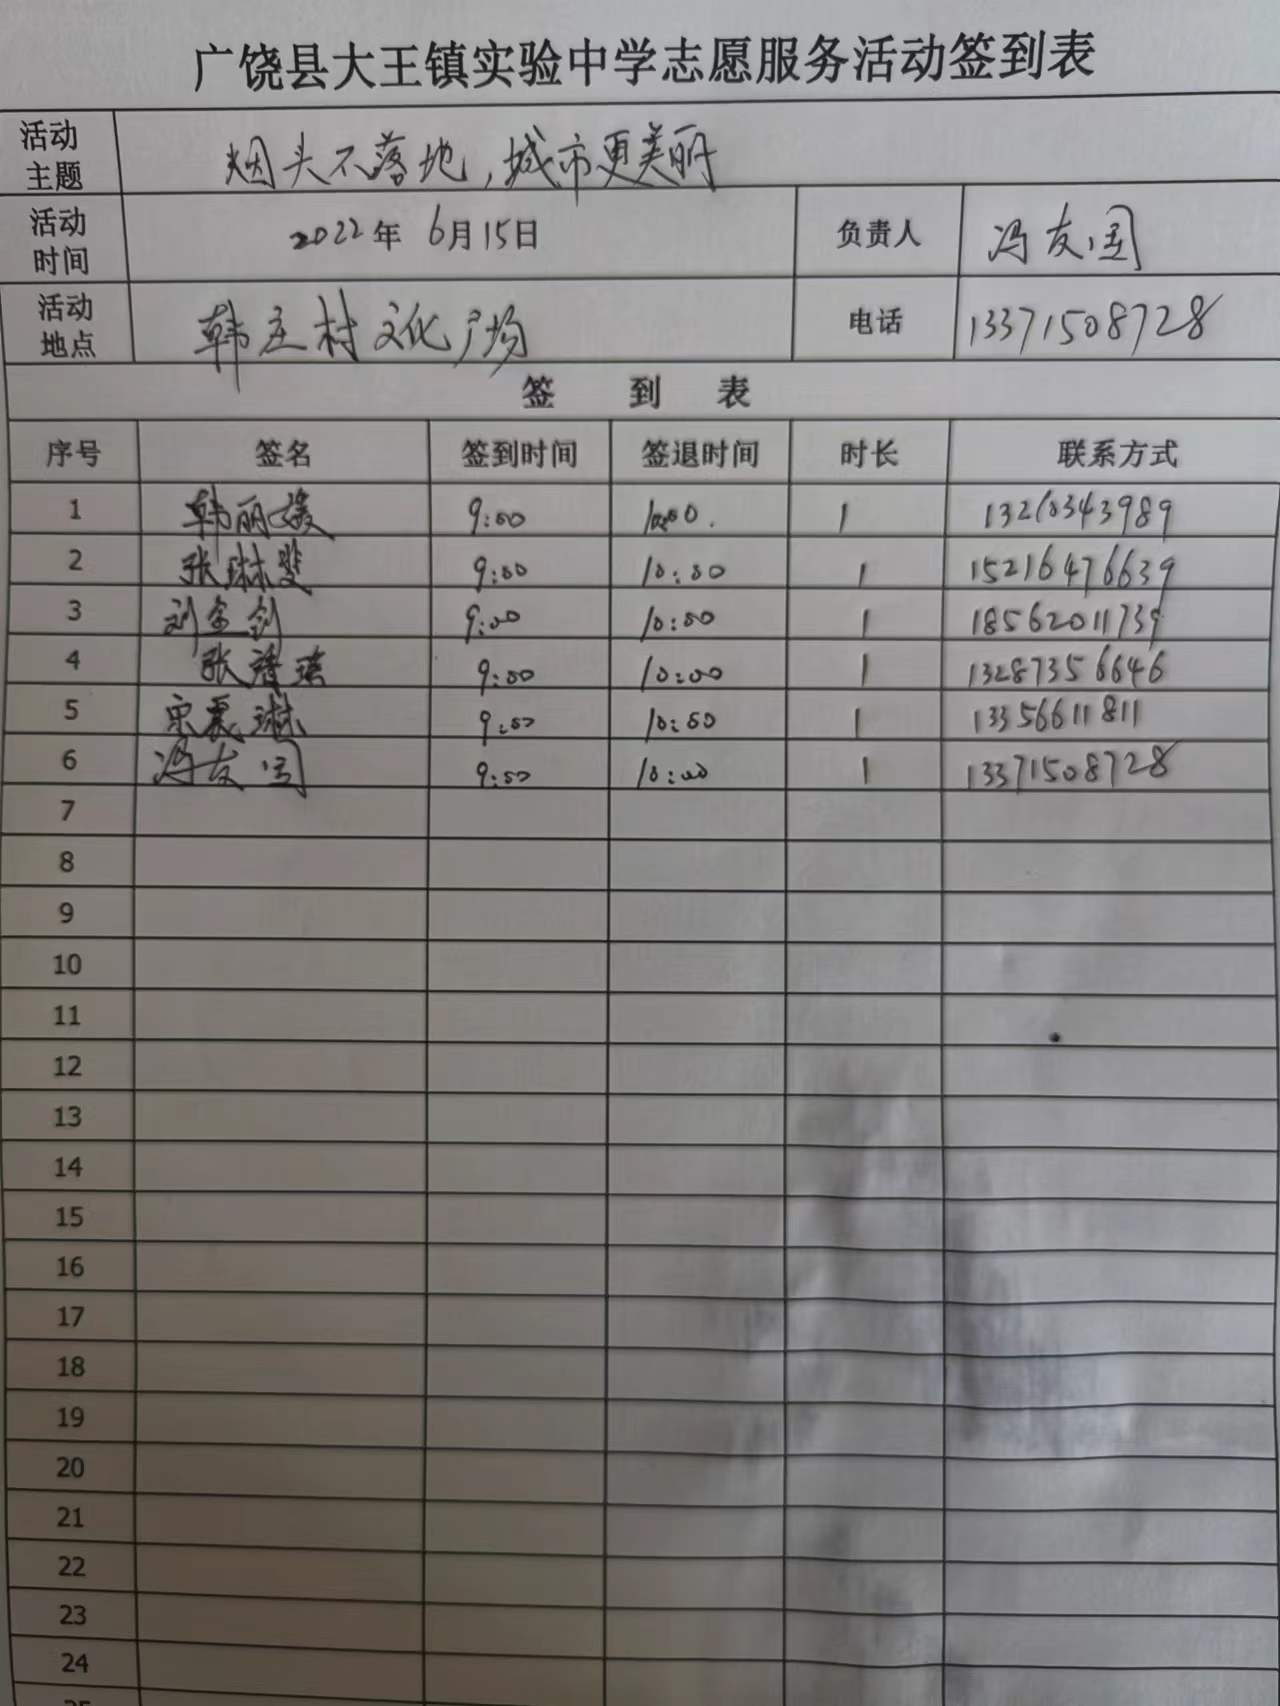 广饶县大王镇实验中学志愿服务活动签到表
活动主题 烟头不落地,城市更美丽
活动时间 2022年 6月15日 负责人 冯友国
活动地点 韩庄村文化广场 电话 13371508728
签 到 表
序号 签名 签到时间 签退时间 时长 联系方式
1 韩丽媛 9:00 10:00. 1 13210343989
2 张琳斐 9:00 10:00 1 15216476639
3 刘金剑 9:00 10:00 1 18562011739
4 张 9:00 10:00 1 13287356646
5 宋震琳 9:00 10:00 1 13356611811
6 冯友国 9:00 10:00 1 13371508728
7
8
9
10
11
12
13
14
15
16
17
18
19
20
21
22
23
24